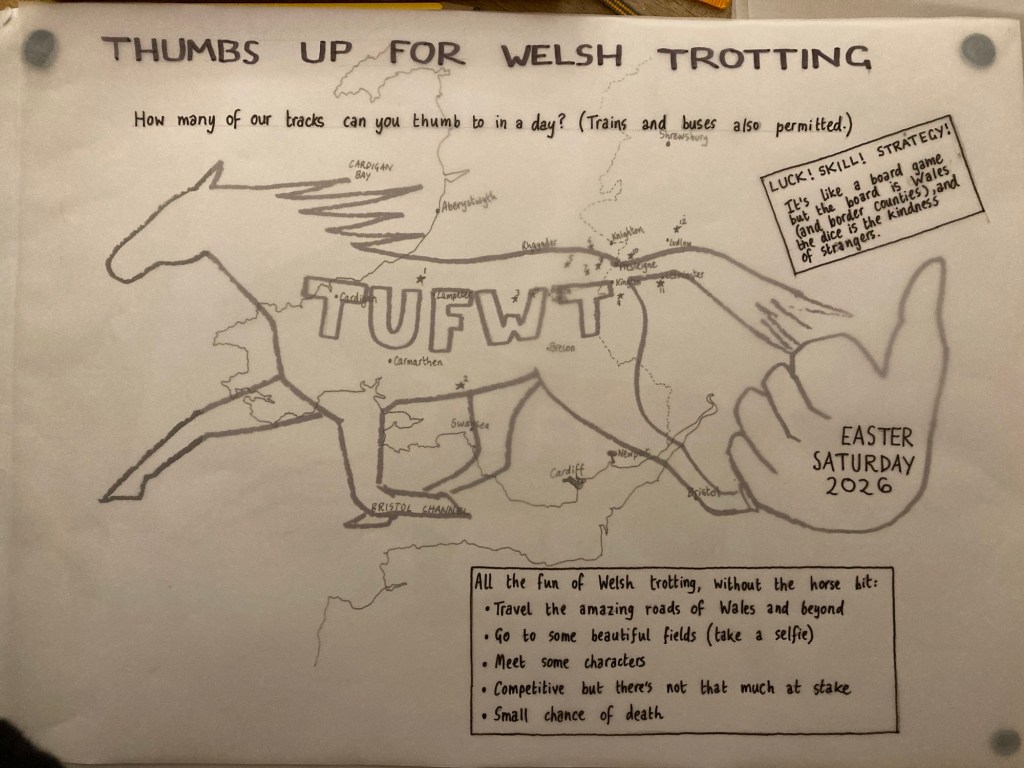 THUMBS UP FOR WELSH TROTTING
How many of our tracks can you thumb to in a day? (Trains and buses also permitted.)
Shrewsbury
LUCK! SKILL! STRATEGY!
It's like a board game
but the board is Wales
(and border counties), and
the dice is the kindness
of strangers.
CARDIGAN
BAY
Aberystwyth
Knighton
12
Ludlow
Rhayader
Presteigne
Kington
11
1
Cardigan
Lampeter
TUFWT
Brecon
Carmarthen
2
Swansea
Newport
Cardiff
Bristol
BRISTOL CHANNEL
EASTER
SATURDAY
2026
All the fun of Welsh trotting, without the horse bit:
• Travel the amazing roads of Wales and beyond
• Go to some beautiful fields (take a selfie)
• Meet some characters
• Competitive but there's not that much at stake
• Small chance of death